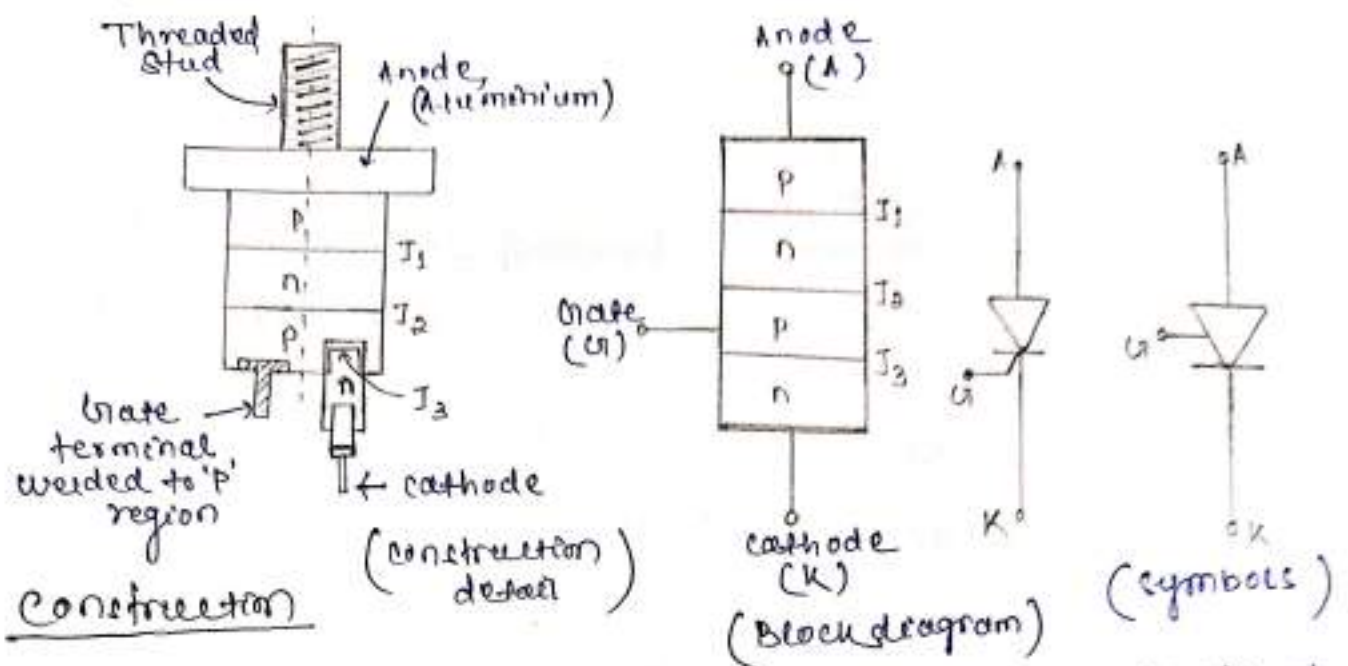 Threaded
Stud
Anode,
(Aluminium)
P
n
P
n
J1
J2
J3
Gate
terminal
welded to 'P'
region
cathode
(construction
detail)
Construction
Anode
(A)
P
n
P
n
J1
J2
J3
Gate
(G)
cathode
(K)
(Block diagram)
A
G
K
A
G
K
(symbols)